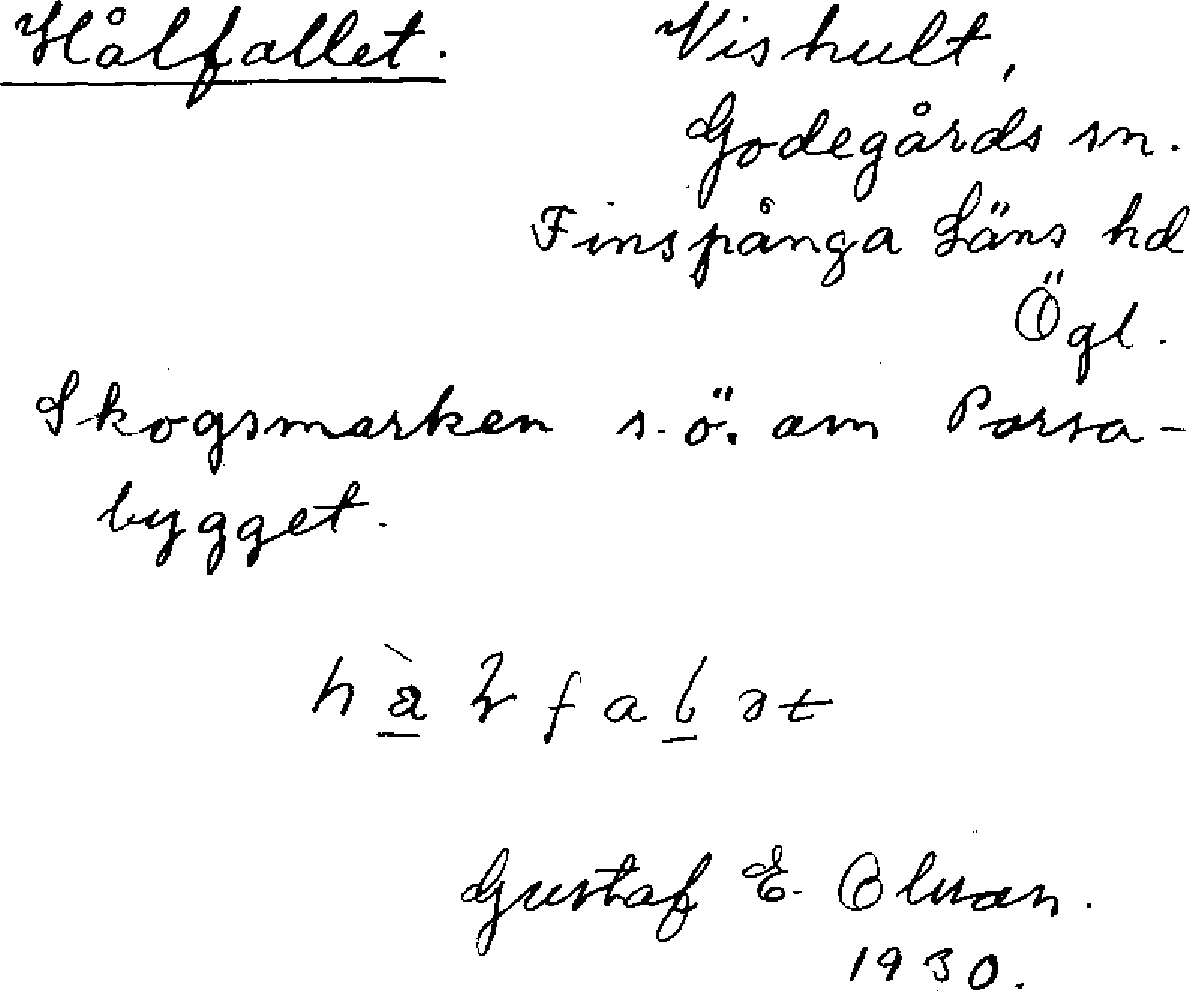 Hålfallet. Vishult,
Godegårds sn.
Finspånga Läns hd
Ögl.
Skogsmarken s.ö. om Porsa-
bygget.
Gustaf E. Olsson.
1930.